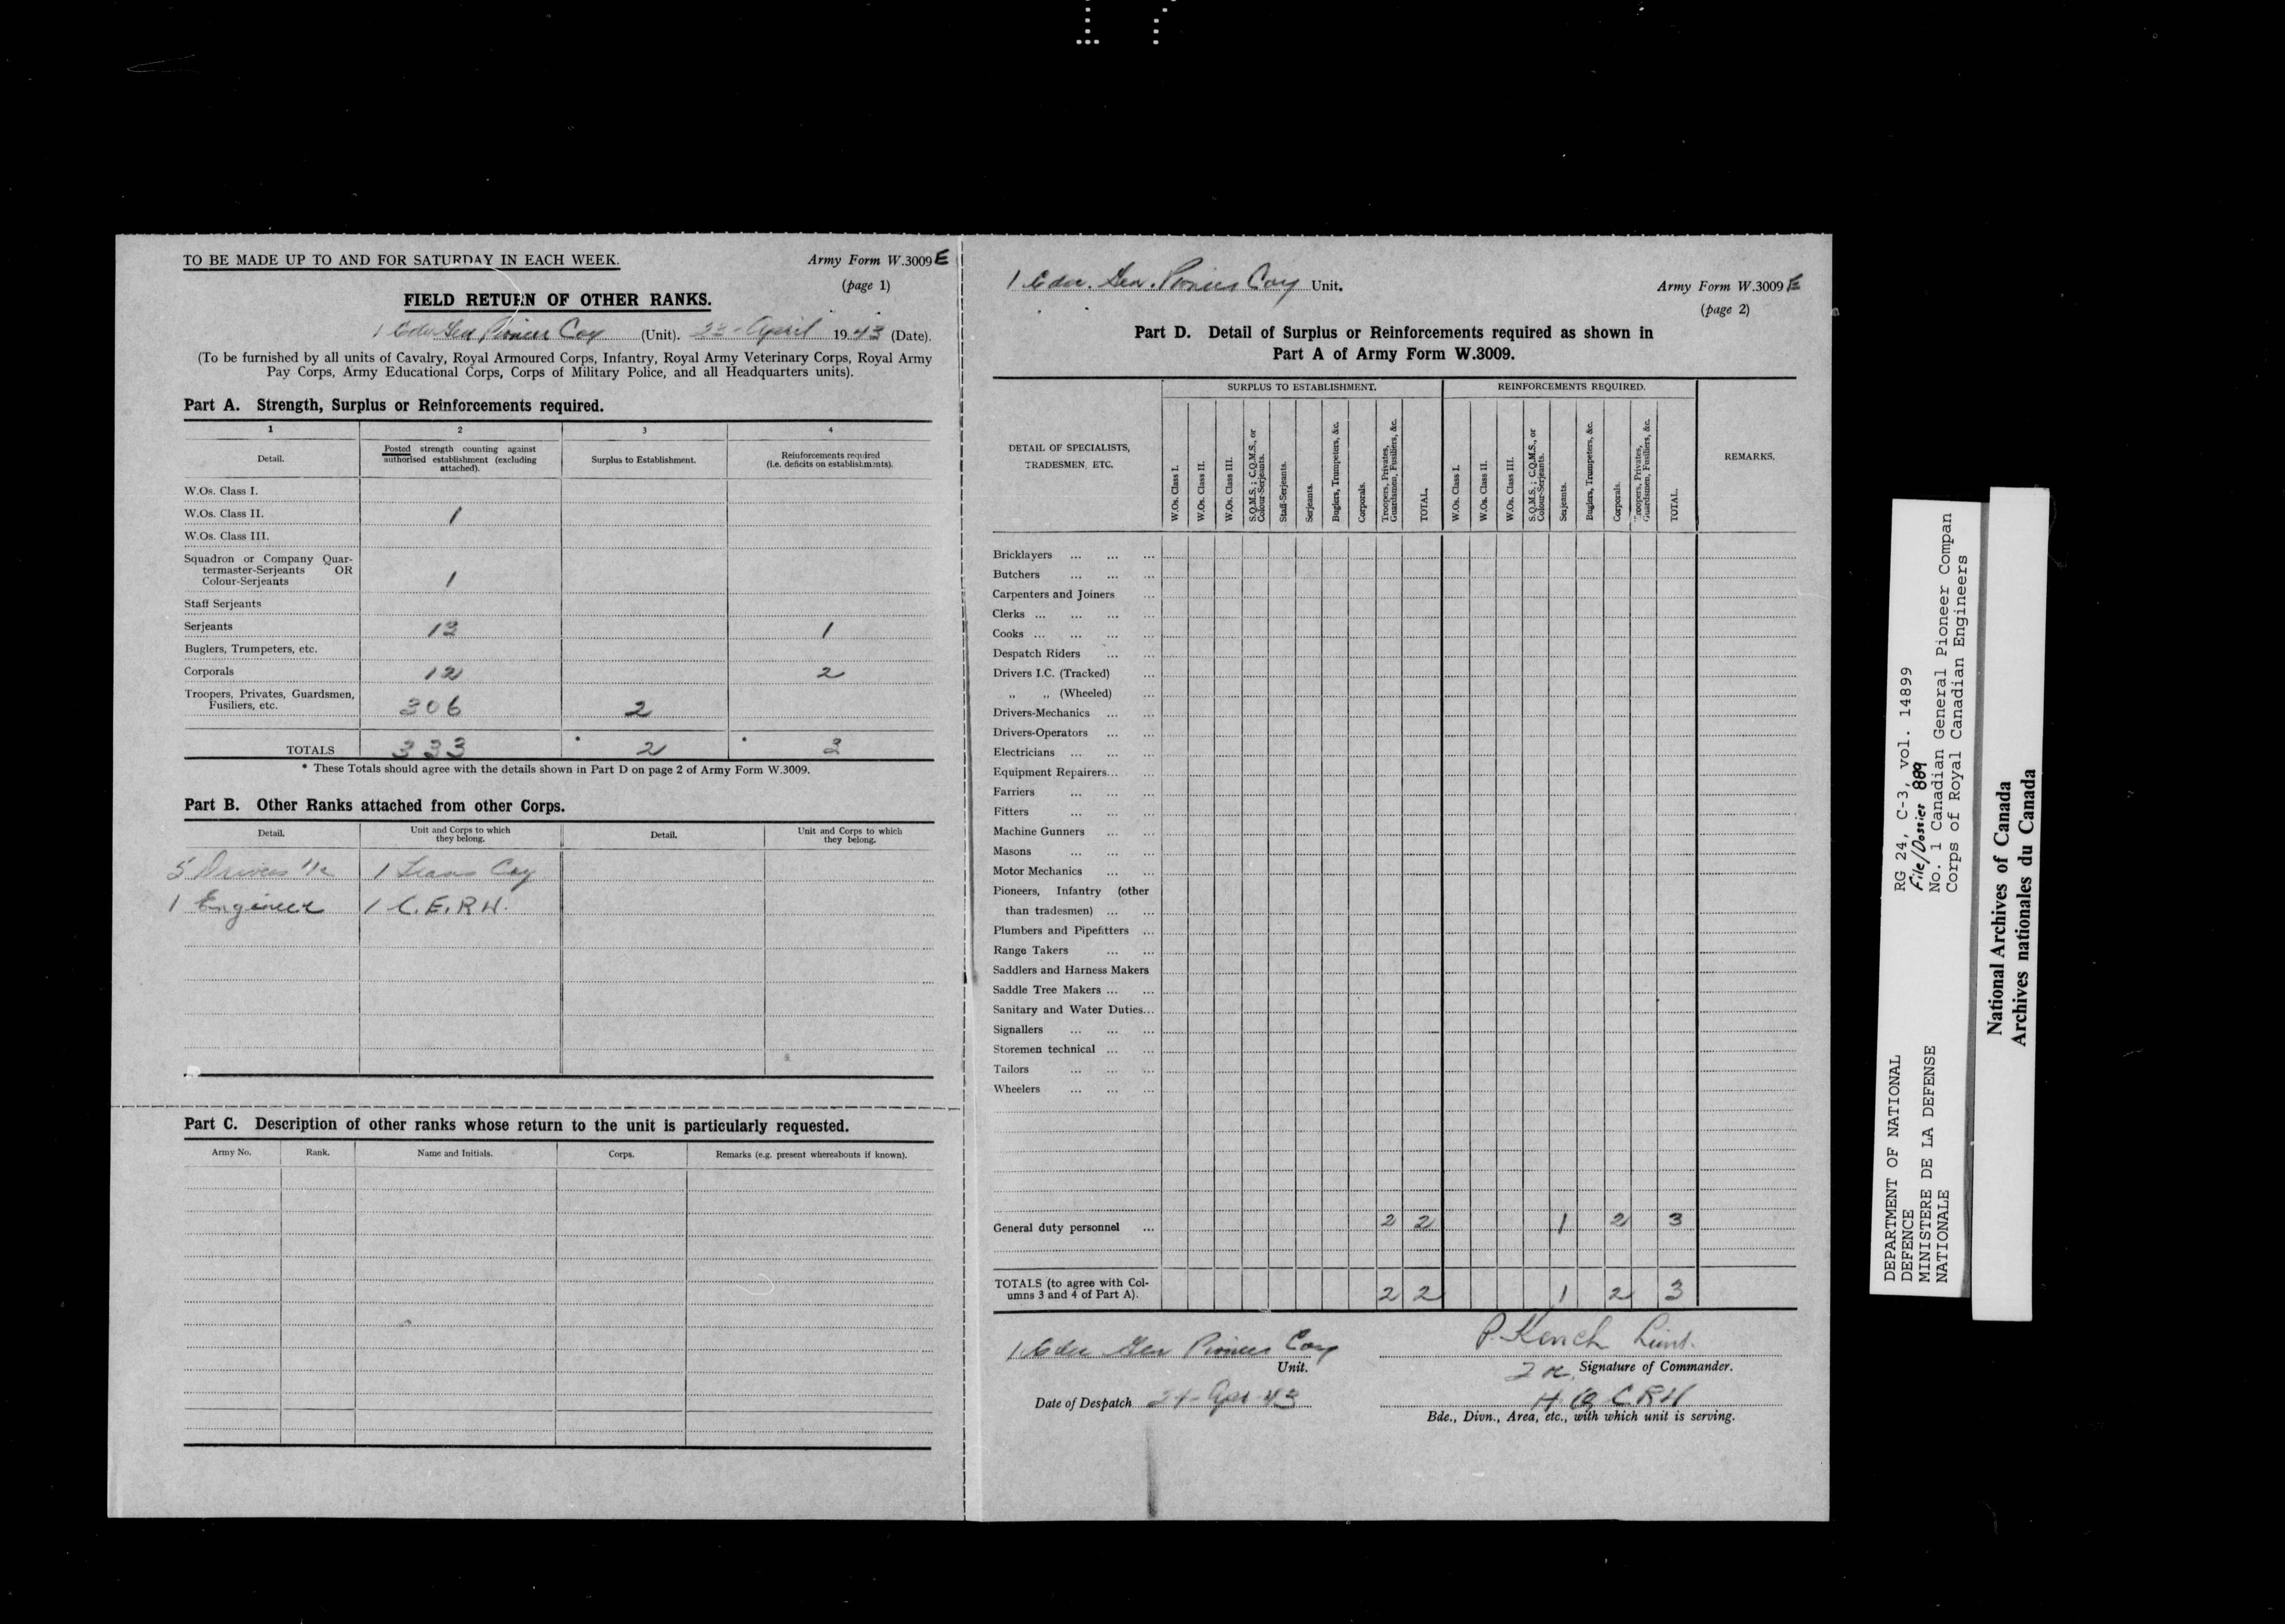 TO BE MADE UP TO AND FOR SATURDAY IN EACH WEEK.
Army Form W.3009 E
(page 1)
FIELD RETURN OF OTHER RANKS.
1 Cdn Gen Pioneer Coy (Unit). April 1943 (Date).
(To be furnished by all units of Cavalry, Royal Armoured Corps, Infantry, Royal Army Veterinary Corps, Royal Army
Pay Corps, Army Educational Corps, Corps of Military Police, and all Headquarters units).
Part A. Strength, Surplus or Reinforcements required.
1 2 3 4
Detail.
Posted strength counting against
authorised establishment (excluding
attached).
Surplus to Establishment.
Reinforcements required
(i.e. deficits on establishments).
W.Os. Class I.
W.Os. Class II. 1
W.Os. Class III.
Squadron or Company Quar-
termaster-Serjeants OR
Colour-Serjeants 1
Staff Serjeants
Serjeants 13 1
Buglers, Trumpeters, etc.
Corporals 12 2
Troopers, Privates, Guardsmen,
Fusiliers, etc. 306 2
TOTALS 333 * 2 * 3
* These Totals should agree with the details shown in Part D on page 2 of Army Form W.3009.
Part B. Other Ranks attached from other Corps.
Detail.
Unit and Corps to which
they belong.
Detail.
Unit and Corps to which
they belong.
5 Drivers i/c 1 Trans Coy
1 Engineer 1 C.E.R.H.
Part C. Description of other ranks whose return to the unit is particularly requested.
Army No. Rank. Name and Initials. Corps. Remarks (e.g. present whereabouts if known).
1 Cdn. Gen. Pioneer Coy Unit.
Army Form W.3009 E
(page 2)
Part D. Detail of Surplus or Reinforcements required as shown in
Part A of Army Form W.3009.
DETAIL OF SPECIALISTS,
TRADESMEN, ETC.
SURPLUS TO ESTABLISHMENT.
W.Os. Class I.
W.Os. Class II.
W.Os. Class III.
S.Q.M.S.; C.Q.M.S., or
Colour-Serjeants.
Staff-Serjeants.
Serjeants.
Buglers, Trumpeters, &c.
Corporals.
Troopers, Privates,
Guardsmen, Fusiliers, &c.
TOTAL.
REINFORCEMENTS REQUIRED.
W.Os. Class I.
W.Os. Class II.
W.Os. Class III.
S.Q.M.S.; C.Q.M.S., or
Colour-Serjeants.
Serjeants.
Buglers, Trumpeters, &c.
Corporals.
Troopers, Privates,
Guardsmen, Fusiliers, &c.
TOTAL.
REMARKS.
Bricklayers ... ... ...
Butchers ... ... ...
Carpenters and Joiners ...
Clerks ... ... ... ...
Cooks ... ... ...
Despatch Riders ... ...
Drivers I.C. (Tracked) ...
,, ,, (Wheeled) ...
Drivers-Mechanics ... ...
Drivers-Operators ... ...
Electricians ... ... ...
Equipment Repairers... ...
Farriers ... ... ...
Fitters ... ... ...
Machine Gunners ... ...
Masons ... ... ...
Motor Mechanics ... ...
Pioneers, Infantry (other
than tradesmen) ... ...
Plumbers and Pipefitters ...
Range Takers ... ...
Saddlers and Harness Makers
Saddle Tree Makers ... ...
Sanitary and Water Duties...
Signallers ... ... ...
Storemen technical ... ...
Tailors ... ... ...
Wheelers ... ... ...
General duty personnel ... 2 2 1 2 3
TOTALS (to agree with Col-
umns 3 and 4 of Part A). 2 2 1 2 3
1 Cdn Gen Pioneer Coy
Unit.
P. Kench Lieut.
Signature of Commander.
Date of Despatch 24 - Apr 43
H.Q. C.R.H
Bde., Divn., Area, etc., with which unit is serving.
DEPARTMENT OF NATIONAL
DEFENCE
MINISTERE DE LA DEFENSE
NATIONALE
RG 24, C-3, vol. 14899
File/Dossier 889
No. 1 Canadian General Pioneer Compan
Corps of Royal Canadian Engineers
National Archives of Canada
Archives nationales du Canada